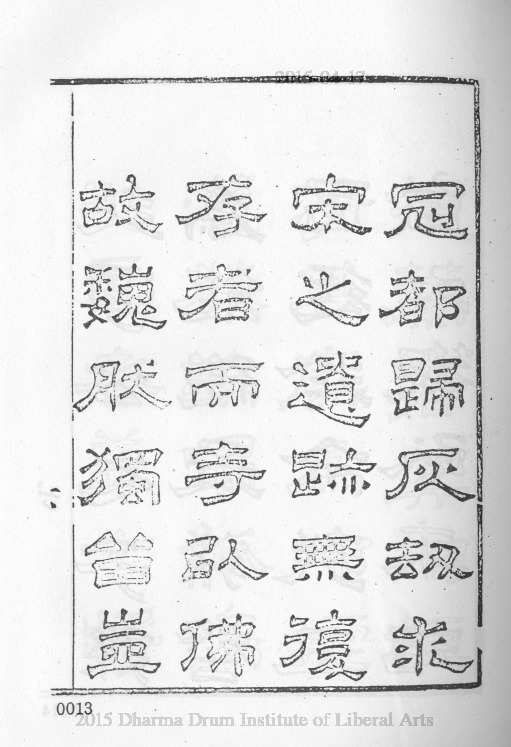 冠都歸灰劫求
宋之遺跡無復
存者而寺以佛
故巍肰獨留豈
0013
2015 Dharma Drum Institute of Liberal Arts